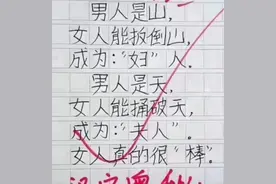 男人是山，
女人能扳倒山，
成为：“妇”人。
男人是天，
女人能捅破天，
成为：“夫人”。
女人真的很“棒”。